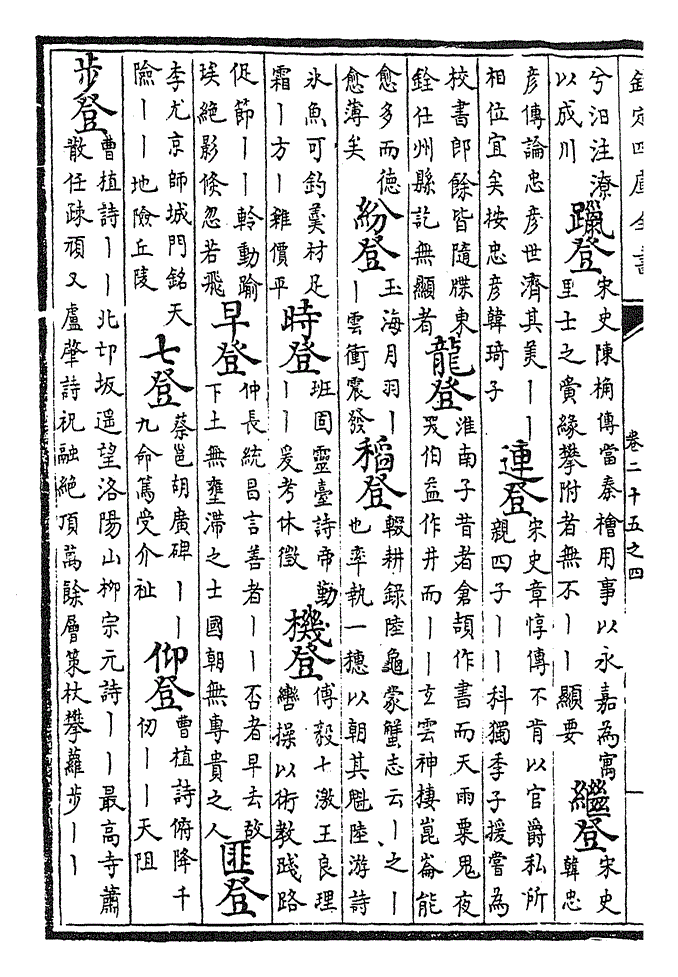 欽定四庫全書
卷二十五之四
兮汨注潦
以成川
躐登
宋史陳桷傳當秦檜用事以永嘉為寓
里士之夤緣攀附者無不——顯要
繼登
宋史
韓忠
彥傳論忠彥世濟其美——
相位宜矣按忠彥韓琦子
連登
宋史章惇傳不肯以官爵私所
親四子——科獨季子援嘗為
校書郎餘皆隨牒東
銓仕州縣訖無顯者
龍登
淮南子昔者倉頡作書而天雨粟鬼夜
哭伯益作井而——玄雲神棲崑崙能
愈多而德
愈薄矣
紛登
玉海月羽—
—雲衝震發
稻登
輟耕錄陸龜蒙蟹志云—之—
也率執一穗以朝其魁陸游詩
氷魚可釣羹材足
霜—方—雜價平
時登
班固靈臺詩帝勤
——爰考休徵
機登
傅毅七激王良理
轡操以術教踐路
促節——軨動踰
埃絕影倏忽若飛
早登
仲長統昌言善者——否者早去故
下土無壅滯之士國朝無專貴之人
匪登
李尤京師城門銘天
險——地險丘陵
七登
蔡邕胡廣碑——
九命篤受介祉
仰登
曹植詩俯降千
仞——天阻
步登
曹植詩——北邙坂遥望洛陽山柳宗元詩——最高寺蕭
散任疎頑又盧肇詩祝融絕頂萬餘層策杖攀蘿步——